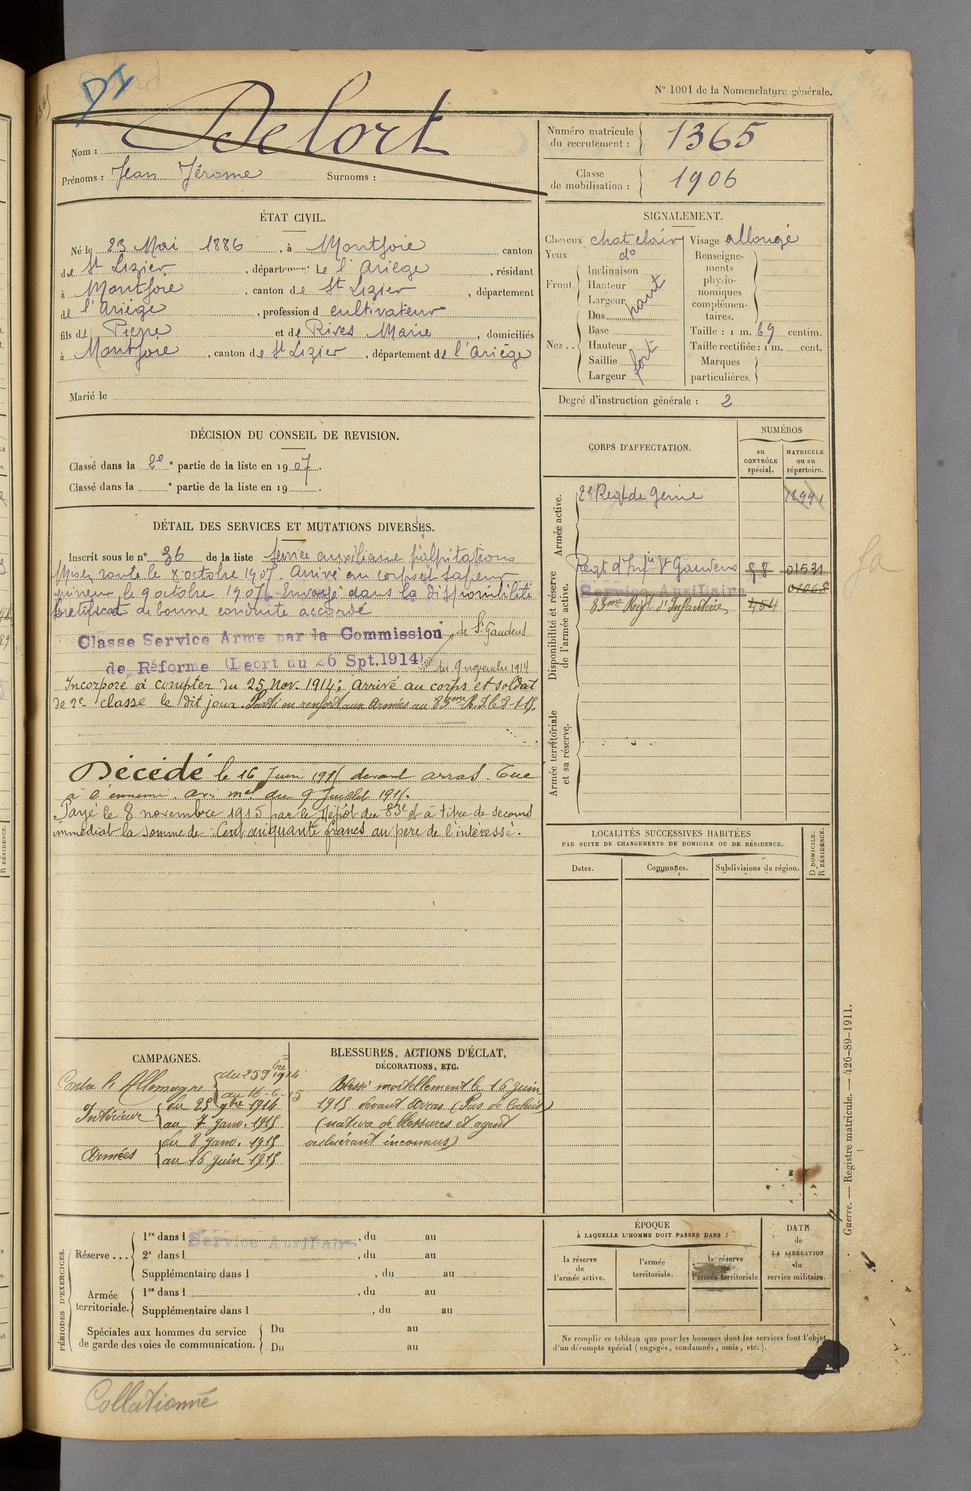 N° 1001 de la Nomenclature générale.
Nom : Delort
Prénoms : Jean Jérome Surnoms :
Numéro matricule du recrutement : 1365
Classe de mobilisation : 1906
ÉTAT CIVIL.
Né le 23 Mai 1886, à Montjoie canton
de St Lizier, département de l'Ariège, résidant
à Montjoie, canton de St Lizier, département
de l'Ariège, profession d cultivateur
fils de Pierre et de Rives Marie, domiciliés
à Montjoie, canton de St Lizier, département de l'Ariège
Marié le
SIGNALEMENT.
Cheveux chat clair Visage allongé
Yeux d°
Front. Inclinaison
Hauteur haut
Largeur
Nez .. Dos
Base
Hauteur fort
Saillie
Largeur
Renseignements physionomiques complémentaires.
Taille : 1 m. 69 centim.
Taille rectifiée : 1 m. cent.
Marques particulières.
Degré d'instruction générale : 2
DÉCISION DU CONSEIL DE REVISION.
Classé dans la 2e partie de la liste en 1907.
Classé dans la e partie de la liste en 19
DÉTAIL DES SERVICES ET MUTATIONS DIVERSES.
Inscrit sous le n° 36 de la liste Service auxiliaire palpitations
Mis en route le 8 octobre 1907. Arrivé au corps et sapeur
mineur le 9 octobre 1907. Envoyé dans la disponibilité
Certificat de bonne conduite accordé
Classe Service Armé par la Commission de St Gaudens
de Réforme (Decrt du 26 Spt. 1914) du 9 novembre 1914
Incorporé à compter du 25 Nov. 1914; arrivé au corps et soldat
de 2e classe le dit jour. Parti en renfort aux Armées au 83ème R.I. le 8-1-15.
Décédé le 16 Juin 1915 devant arras. Tué
à l'ennemi. avis mel du 9 Juillet 1915.
Payé le 8 novembre 1915 par le Dépôt du 83e et à titre de secours
immédiat la somme de : Cent cinquante francs au père de l'intéressé.
CORPS D'AFFECTATION.
NUMÉROS
au CONTRÔLE spécial.
MATRICULE ou au répertoire.
Armée active.
2e Regt de Génie
Disponibilité et réserve de l'armée active.
Regt d'Infie St Gaudens 98 01531
Service Auxiliaire
83ème Régt d'Infanterie 464
Armée territoriale et sa réserve.
LOCALITÉS SUCCESSIVES HABITÉES
PAR SUITE DE CHANGEMENTS DE DOMICILE OU DE RÉSIDENCE.
Dates. Communes. Subdivisions de région. D DOMICILE. R RÉSIDENCE.
CAMPAGNES.
Contre l'Allemagne du 25 9bre 1914
au 16-6-15
Intérieur du 25 9bre 1914
au 7 janv. 1915
Armées du 8 janv. 1915
au 16 juin 1915
BLESSURES, ACTIONS D'ÉCLAT,
DÉCORATIONS, ETC.
Blessé mortellement le 16 juin
1915 devant Arras (Pas de Calais)
(nature de blessures et agent
vulnérant inconnus)
PÉRIODES D'EXERCICES.
Réserve ... 1re dans l Service Auxiliaire, du au
2e dans l, du au
Supplémentaire dans l, du au
Armée territoriale. 1re dans l, du au
Supplémentaire dans l, du au
Spéciales aux hommes du service de garde des voies de communication. Du au
Du au
ÉPOQUE
À LAQUELLE L'HOMME DOIT PASSER DANS :
la réserve de l'armée active.
l'armée territoriale.
la réserve de l'armée territoriale
DATE de LA LIBÉRATION du service militaire.
Ne remplir ce tableau que pour les hommes dont les services font l'objet
d'un décompte spécial (engagés, condamnés, omis, etc.).
Guerre. — Registre matricule. — 426-89-1911.
Collationné